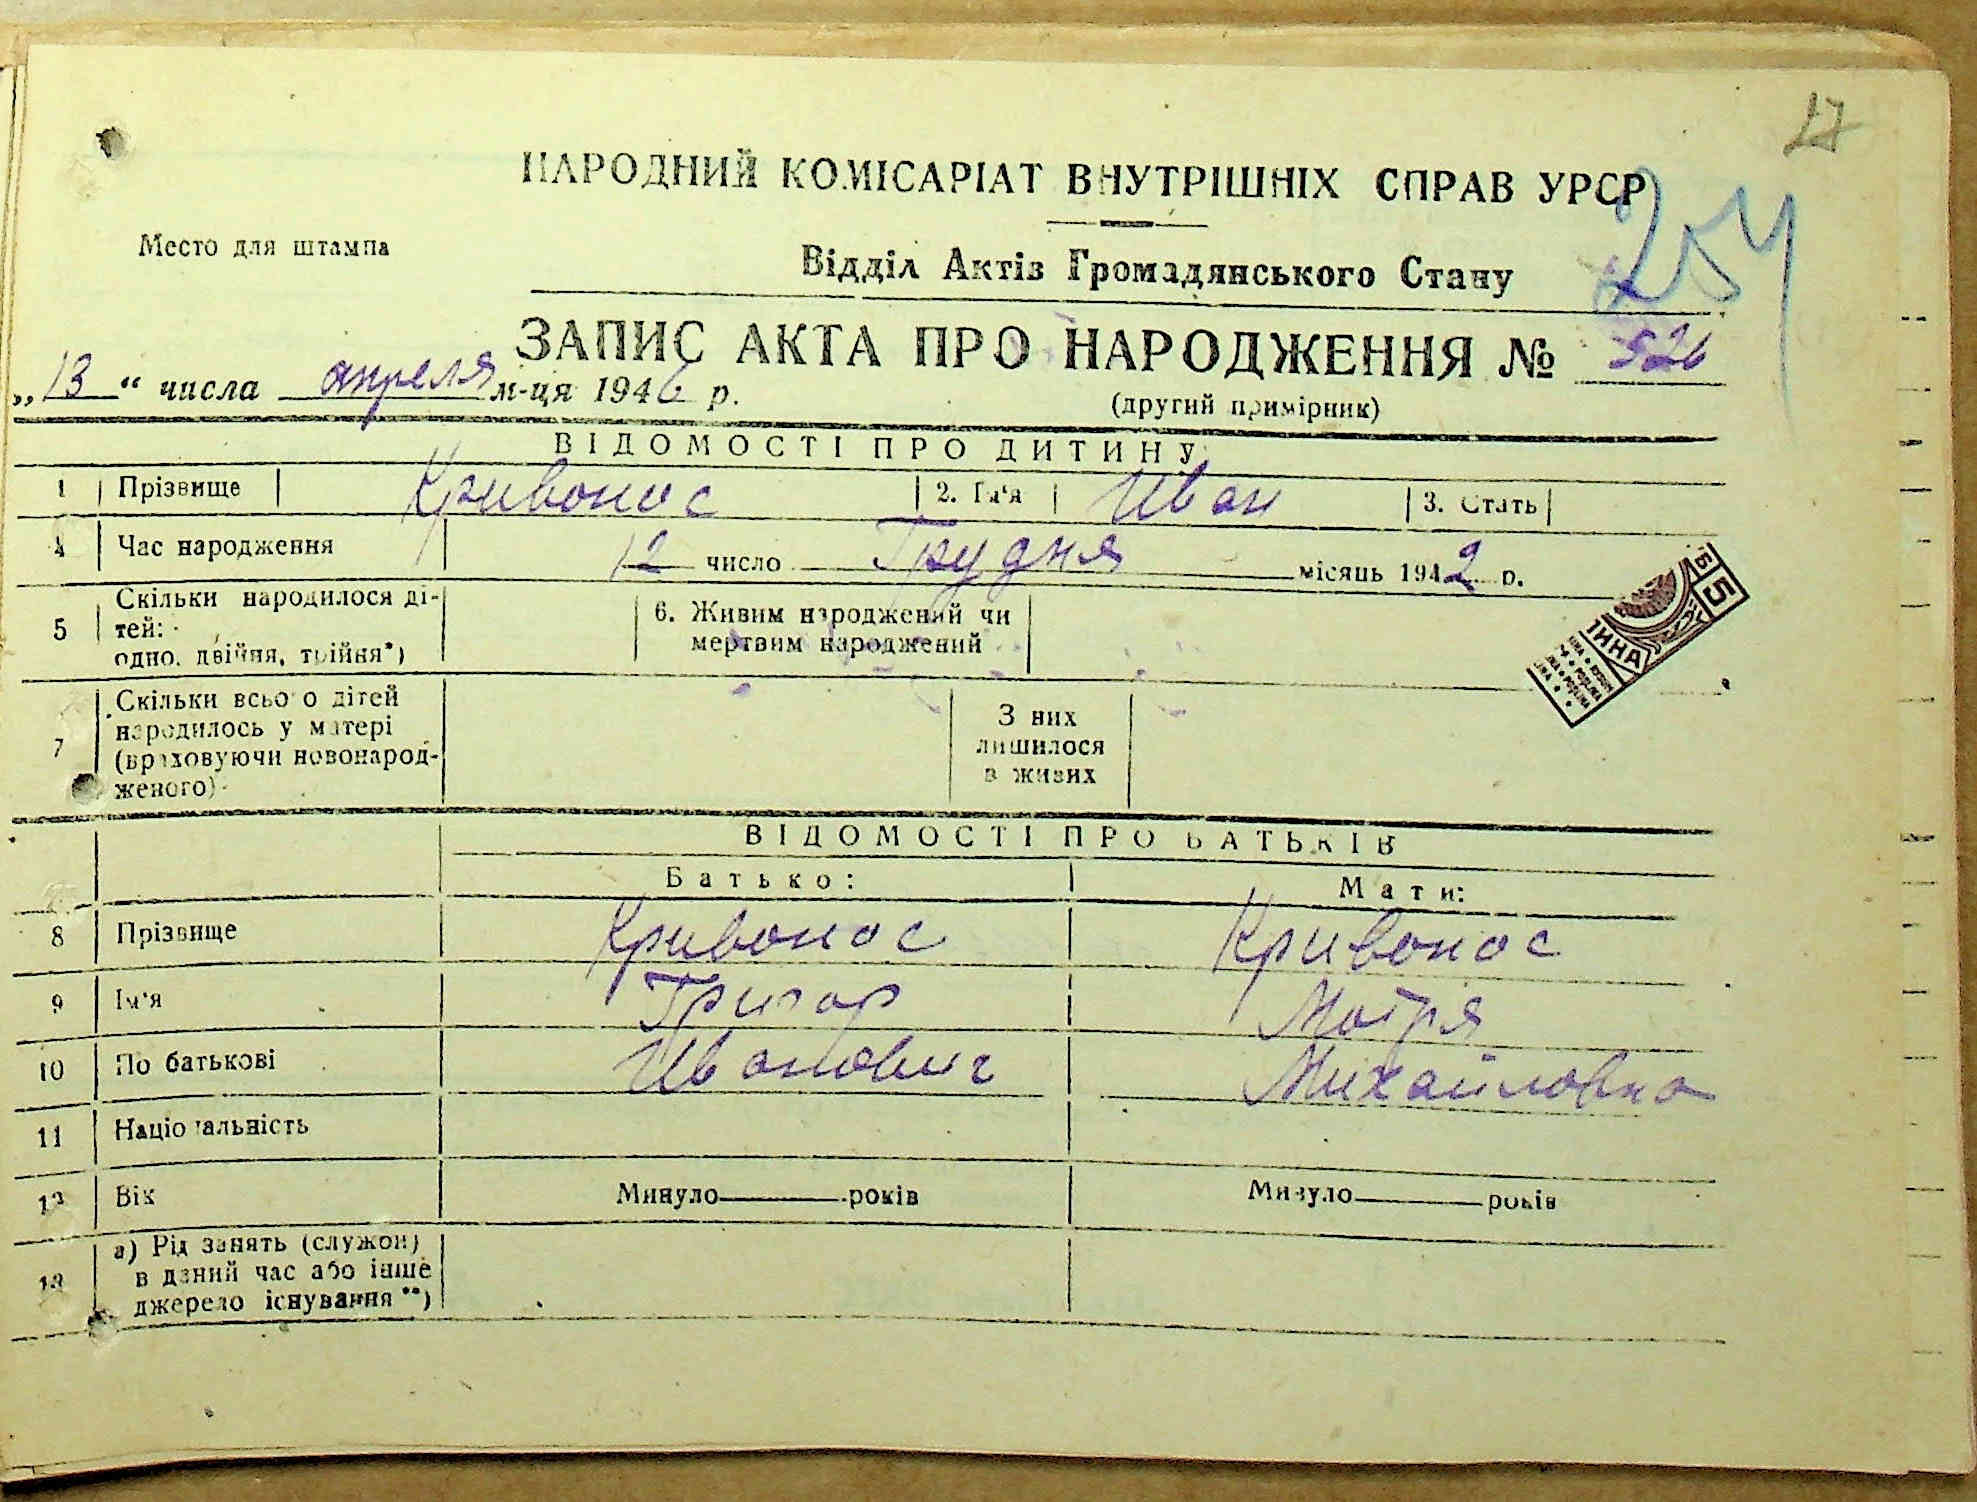 17
НАРОДНИЙ КОМІСАРІАТ ВНУТРІШНІХ СПРАВ УРСР
254
Место для штампа
Відділ Актів Громадянського Стану
ЗАПИС АКТА ПРО НАРОДЖЕННЯ № 526
„13“ числа апреля м-ця 1946 р.
(другий примірник)
ВІДОМОСТІ ПРО ДИТИНУ
1 Прізвище Кривонос 2. Ім'я Иван 3. Стать
4 Час народження 12 число Грудня місяць 1942 р.
5 Скільки народилося ді-
тей:
одно, двійня, трійня*)
6. Живим народжений чи
мертвим народжений
7 Скільки всього дітей
народилось у матері
(враховуючи новонарод-
женого)
З них
лишилося
в живих
5
ВІДОМОСТІ ПРО БАТЬКІВ
Батько: Мати:
8 Прізвище Кривонос Кривонос
9 Ім'я Григор Мотря
10 По батькові Иванович Михайловна
11 Національність
12 Вік Минуло років Минуло років
13 а) Рід занять (служби)
в даний час або інше
джерело існування**)